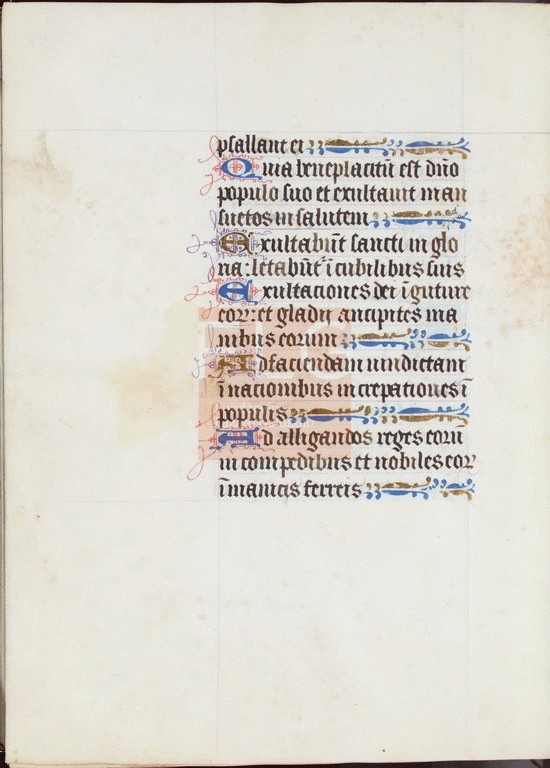 psallant ei
Quia beneplacitū est dn̄o
populo suo et exultauit man
suetos in salutem
Exultabūt sancti in glo
ria: letabūt̄ ī cubilibus suis
Exultaciones dei ī guture
eorꝝ: et gladii ancipites ma
nibus eorum
Ad faciendam uindictam
ī nacionibus increpationes ī
populis
Ad alligandos reges eorū
in compedibus et nobiles eorꝝ
ī manicis ferreis